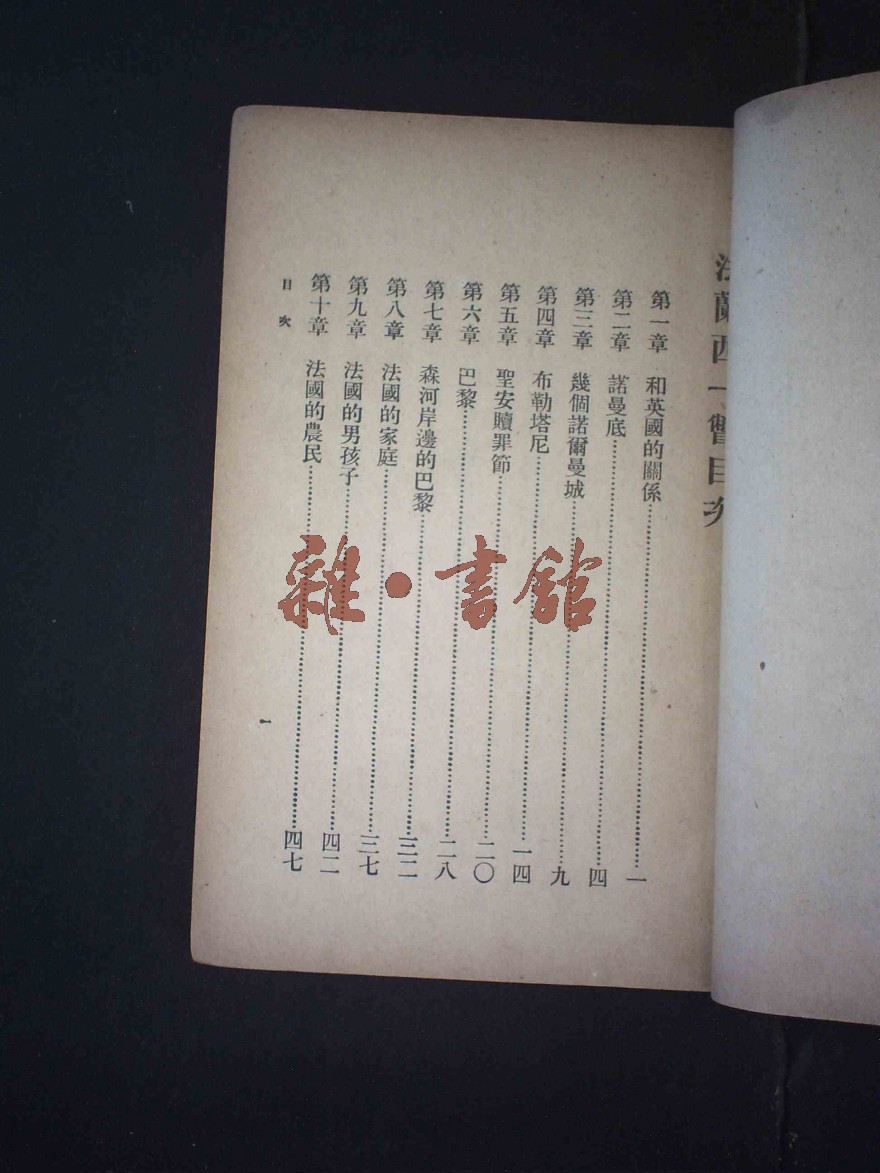 法蘭西一瞥目次
第一章 和英國的關係……一
第二章 諾曼底……四
第三章 幾個諾爾曼城……九
第四章 布勒塔尼……一四
第五章 聖安贖罪節……二〇
第六章 巴黎……二八
第七章 森河岸邊的巴黎……三二
第八章 法國的家庭……三七
第九章 法國的男孩子……四二
第十章 法國的農民……四七
目次
一
雜·書館